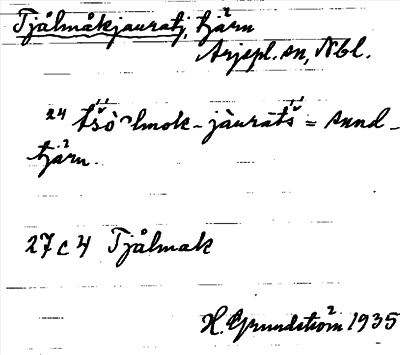 Tjålmåkjauratj, tjärn
Arjepl. sn, Nbl.
24 tšò̀lmok-jàuràtš = sund-
tjärn.
27 c 4 Tjålmak
H. Grundström 1935